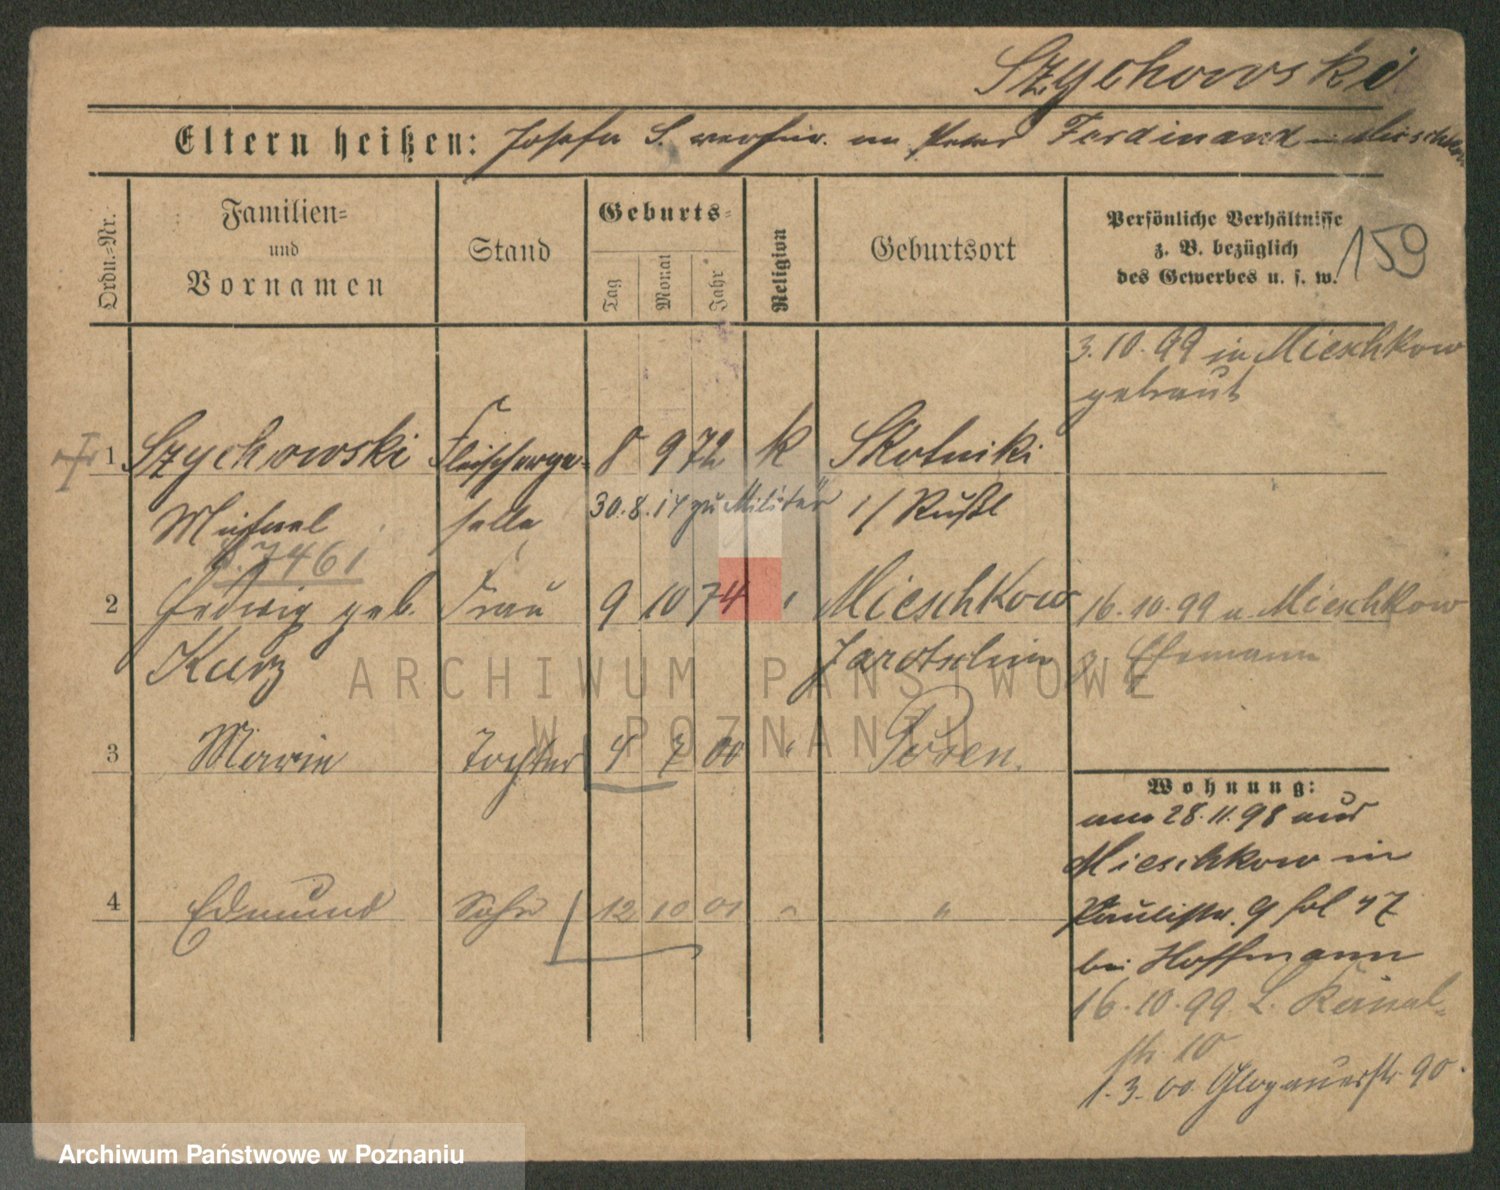 Szychowski
Eltern heißen: Josefa S. verheir. an Peter Ferdinand in Mieschkow
Ordn.-Nr.
Familien-
und
Vornamen
Stand
Geburts-
Tag
Monat
Jahr
Religion
Geburtsort
Persönliche Verhältnisse
z. B. bezüglich
des Gewerbes u. s. w.
159
3.10.99 in Mieschkow
getraut
1 Szychowski Fleischerge- 8 9 72 k Skotniki
Michael selle 30.8.14 zu Militär i/ Rußl
7461
2 Hedwig geb. Frau 9 10 74 Mieschkow 16.10.99 u. Mieschkow
Kurz Jarotschin z. Ehemann
3 Marie Tochter 4 7 00 " Posen.
Wohnung:
am 28.11.98 aus
Mieschkow in
4 Edmund Sohn 12 10 01 " "
Paulistr. 9 hol 47
bei Hoffmann
16.10.99 L. Kanal-
str. 10
1.3.00 Glogauerstr 90.
ARCHIWUM PAŃSTWOWE
W POZNANIU
Archiwum Państwowe w Poznaniu